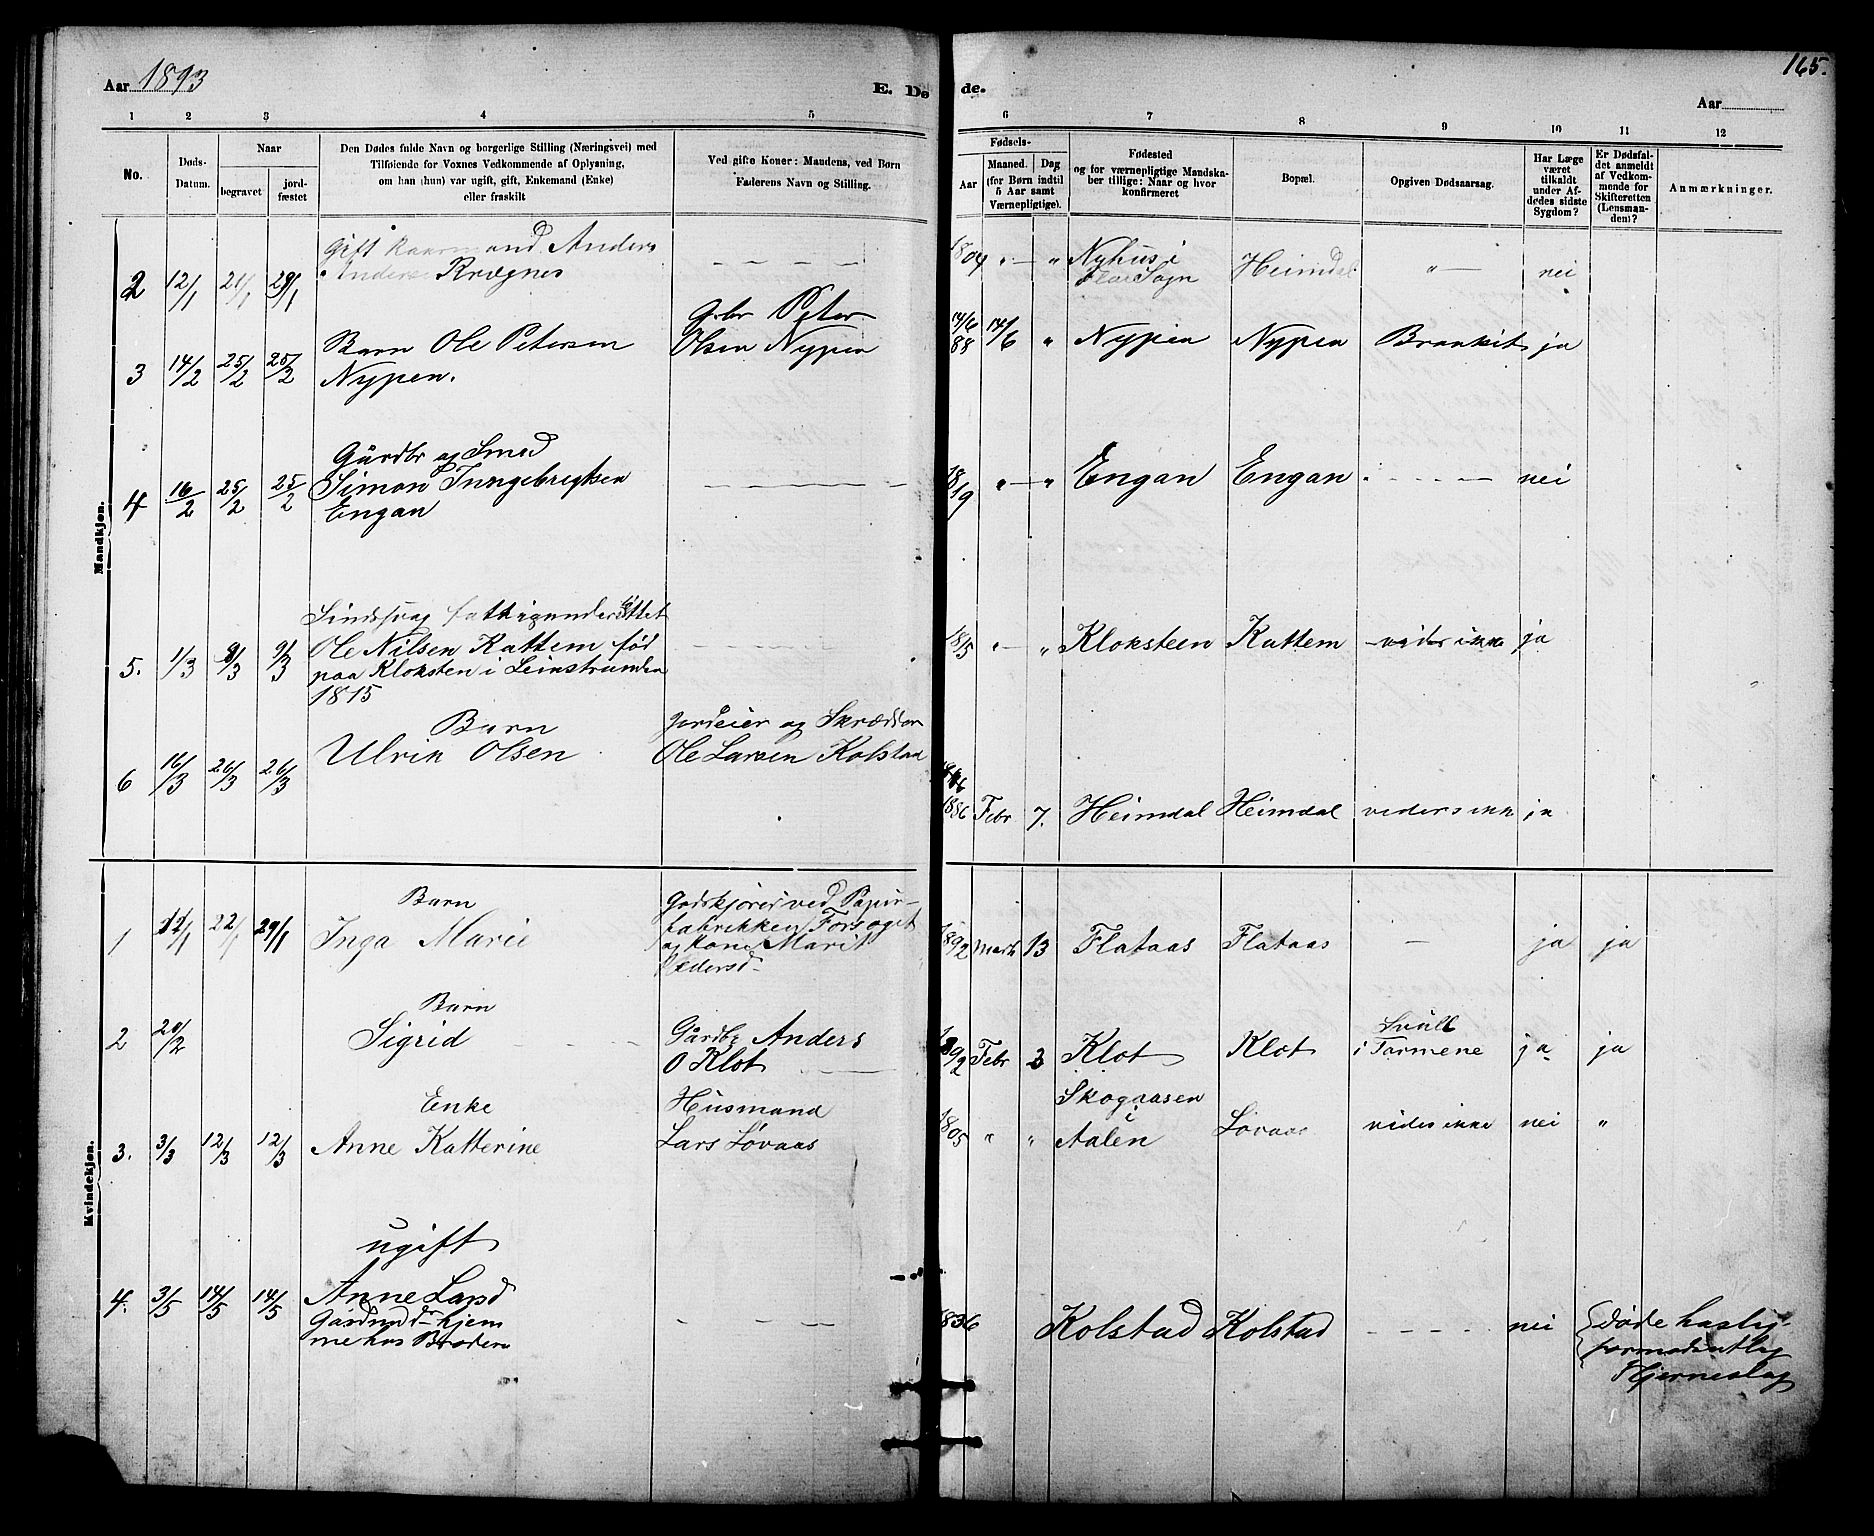 Aar 1893
E. Dø
de.
165.
Aar
1
2
3
4
5
6
7
8
9
10
11
12
No.
Døds-
Datum.
Naar
begravet
jord-
fæstet
Den Dødes fulde Navn og borgerlige Stilling (Næringsvei) med
Tilføiende for Voxnes Vedkommende af Oplysning,
om han (hun) var ugift, gift, Enkemand (Enke)
eller fraskilt
Ved gifte Koner: Mandens, ved Børn
Faderens Navn og Stilling.
Fødsels-
Aar
Maaned.
Dag
(for Børn indtil
5 Aar samt
Værnepligtige).
Fødested
og for værnepligtige Mandska-
ber tillige: Naar og hvor
konfirmeret
Bopæl.
Opgiven Dødsaarsag.
Har Læge
været
tilkaldt
under Af-
dødes sidste
Sygdom?
Er Dødsfal-
det anmeldt
af Vedkom-
mende for
Skifteretten
(Lensman-
den)?
Anmærkninger.
Mandkjøn.
Gift Kaarmand Anders
2 12/1 21/1 29/1 Anders Krægnes - - - - 1804 " — " Nyhus i Heimdal " — nei
Flaa Sogn
Gbr Peter
3 14/2 25/2 25/2 Barn Ole Petersen Olsen Nypen 14/6 88 14/6 " Nypen Nypen Brankit ja
Nypen.
Gårdbr og Smed
4 16/2 25/2 25/2 Simon Inngebrigtsen - - - - 1819 " — " Engan Engan - - - - nei
Engan
Sindssvag fattigunderstøttet
5. 1/3 9/3 9/3 Ole Nilsen Kattem fød - - - - 1815 " — " Kloksteen Kattem vides ikke ja
paa Kloksten i Leinstranden
1815
Barn Jordeier og Skrædder
6 16/3 26/3 26/3 Ulrik Olsen Ole Larsen Kolstad
1886 Febr 7. Heimdal Heimdal vedes ikk ja
Kvindekjøn.
Barn Godskjører ved Papir-
1 11/1 22/1 29/1 Inga Marie fabrikken Forsøget
og Kone Marit 1892 Marts 13 Flataas Flataas — ja ja
Pedersd
Barn
2 20/2 Sigrid Gårdbr Anders
O Kløt 1892 Febr 3 Kløt Kløt Svull
i Tarmene ja ja
Enke Husmand
3. 3/3 12/3 12/3 Anne Katterine Lars Løvaas 1805 " " Skogaasen
i
Aalen Løvaas vides ikke nei "
ugift
4. 3/5 14/5 14/5 Anne Larsd - - - 1836 Kolstad Kolstad - - - - nei Døde hastig
formodentlig
Hjerneslag
hjem
me hos Broderen